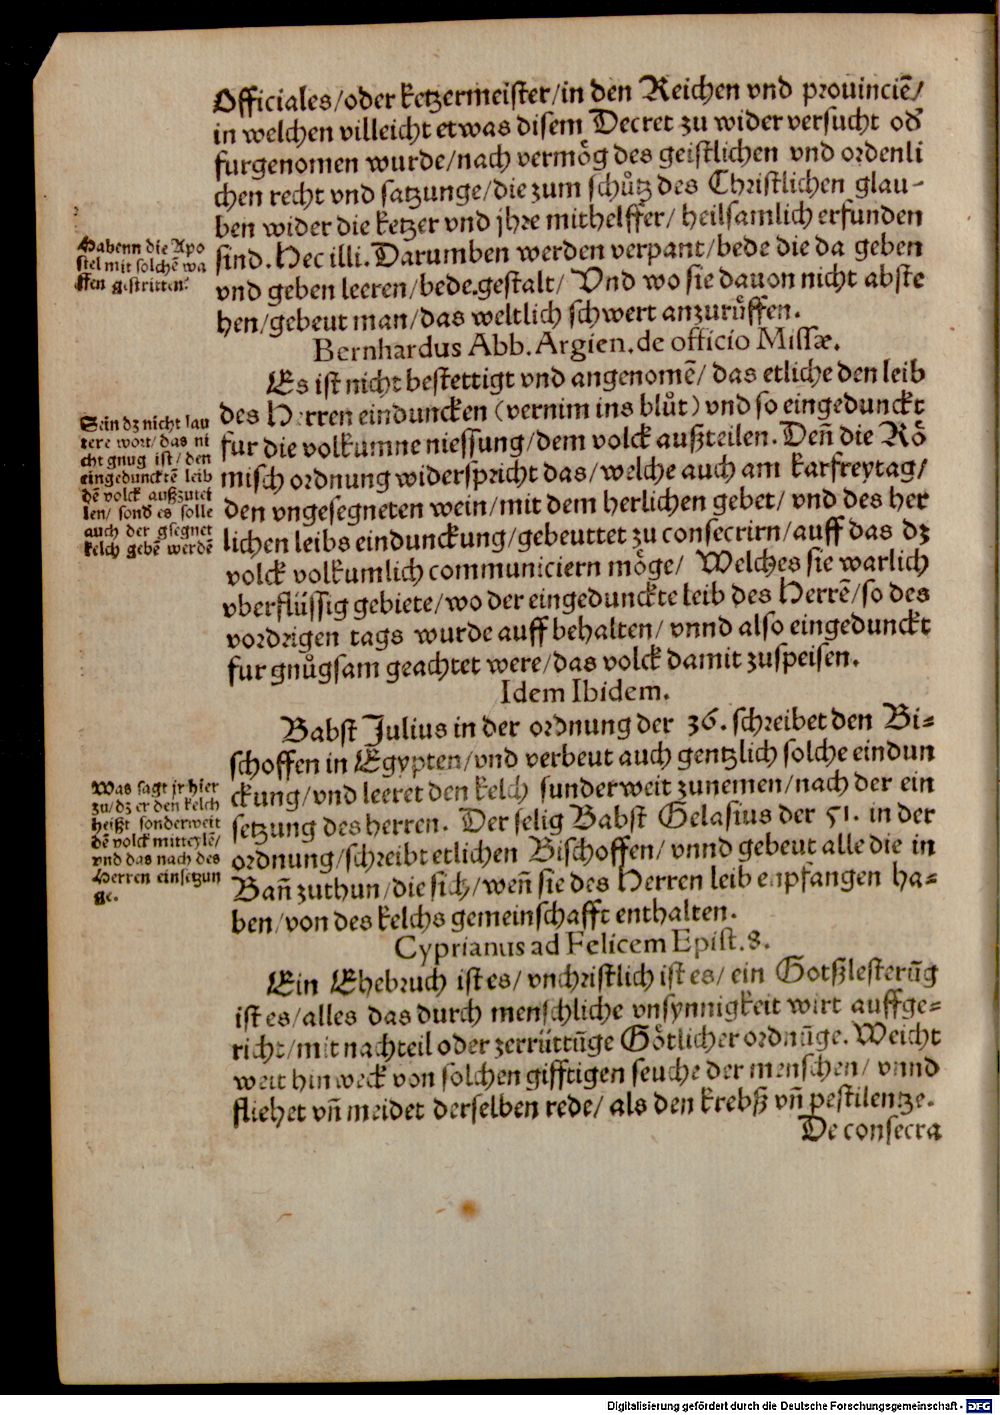 Officiales/oder ketzermeister/in den Reichen vnd prouinciē/
in welchen villeicht etwas disem Decret zu wider versucht od'
furgenomen wurde/nach vermoͤg des geistlichen vnd ordenli
chen recht vnd satzunge/die zum schuͦtz des Christlichen glau-
ben wider die ketzer vnd jhre mithelffer/ heilsamlich erfunden
sind. Hec illi. Darumben werden verpant/bede die da geben
vnd geben leeren/bede.gestalt/ Vnd wo sie dauon nicht abste
hen/gebeut man/das weltlich schwert anzuruͦffen.
Habenn die Apo
stel mit solchē wa
ffen gestritten?
Bernhardus Abb. Argien. de officio Missæ.
Es ist nicht bestettigt vnd angenomē/ das etliche den leib
des Herren einduncken (vernim ins bluͦt) vnd so eingedunckt
fur die volkumne niessung/dem volck außteilen. Deñ die Roͤ
misch ordnung widerspricht das/welche auch am karfreytag/
den vngesegneten wein/mit dem herlichen gebet/ vnd des her
lichen leibs eindunckung/gebeuttet zu consecrirn/auff das dz
volck volkumlich communiciern moͤge/ Welches sie warlich
vberflüssig gebiete/wo der eingedunckte leib des Herrē/so des
vordrigen tags wurde auff behalten/ vnnd also eingedunckt
fur gnuͦgsam geachtet were/das volck damit zuspeisen.
Sein dz nicht lau
tere wort/ das ni
cht gnug ist/ den
eingedunckтē leib
dē volck außzutei
len/ sond' es solle
auch der gsegnet
kelch gebē werdē
Idem Ibidem.
Babst Julius in der ordnung der 36. schreibet den Bi=
schoffen in Egypten/vnd verbeut auch gentzlich solche eindun
ckung/vnd leeret den kelch sunderweit zunemen/nach der ein
setzung des herren. Der selig Babst Gelasius der 51. in der
ordnung/schreibt etlichen Bischoffen/ vnnd gebeut alle die in
Bañ zuthun/die sich/weñ sie des Herren leib enpfangen ha=
ben/von des kelchs gemeinschafft enthalten.
Was sagt jr hier
zu/dz er den kelch
heißt sonderweit
dē volck mitteylē/
vnd das nach des
Herren einsetzun
ge.
Cyprianus ad Felicem Epist. 8.
Ein Ehebruch ist es/ vnchristlich ist es/ ein Gotßlesterūg
ist es/alles das durch menschliche vnsynnigkeit wirt auffge=
richt/mit nachteil oder zerrüttūge Goͤtlicher ordnūge. Weicht
weit hinweck von solchen gifftigen seuche der menschen/ vnnd
fliehet vñ meidet derselben rede/ als den krebß vñ pestilentze.
De consecra
Digitalisierung gefördert durch die Deutsche Forschungsgemeinschaft - DFG